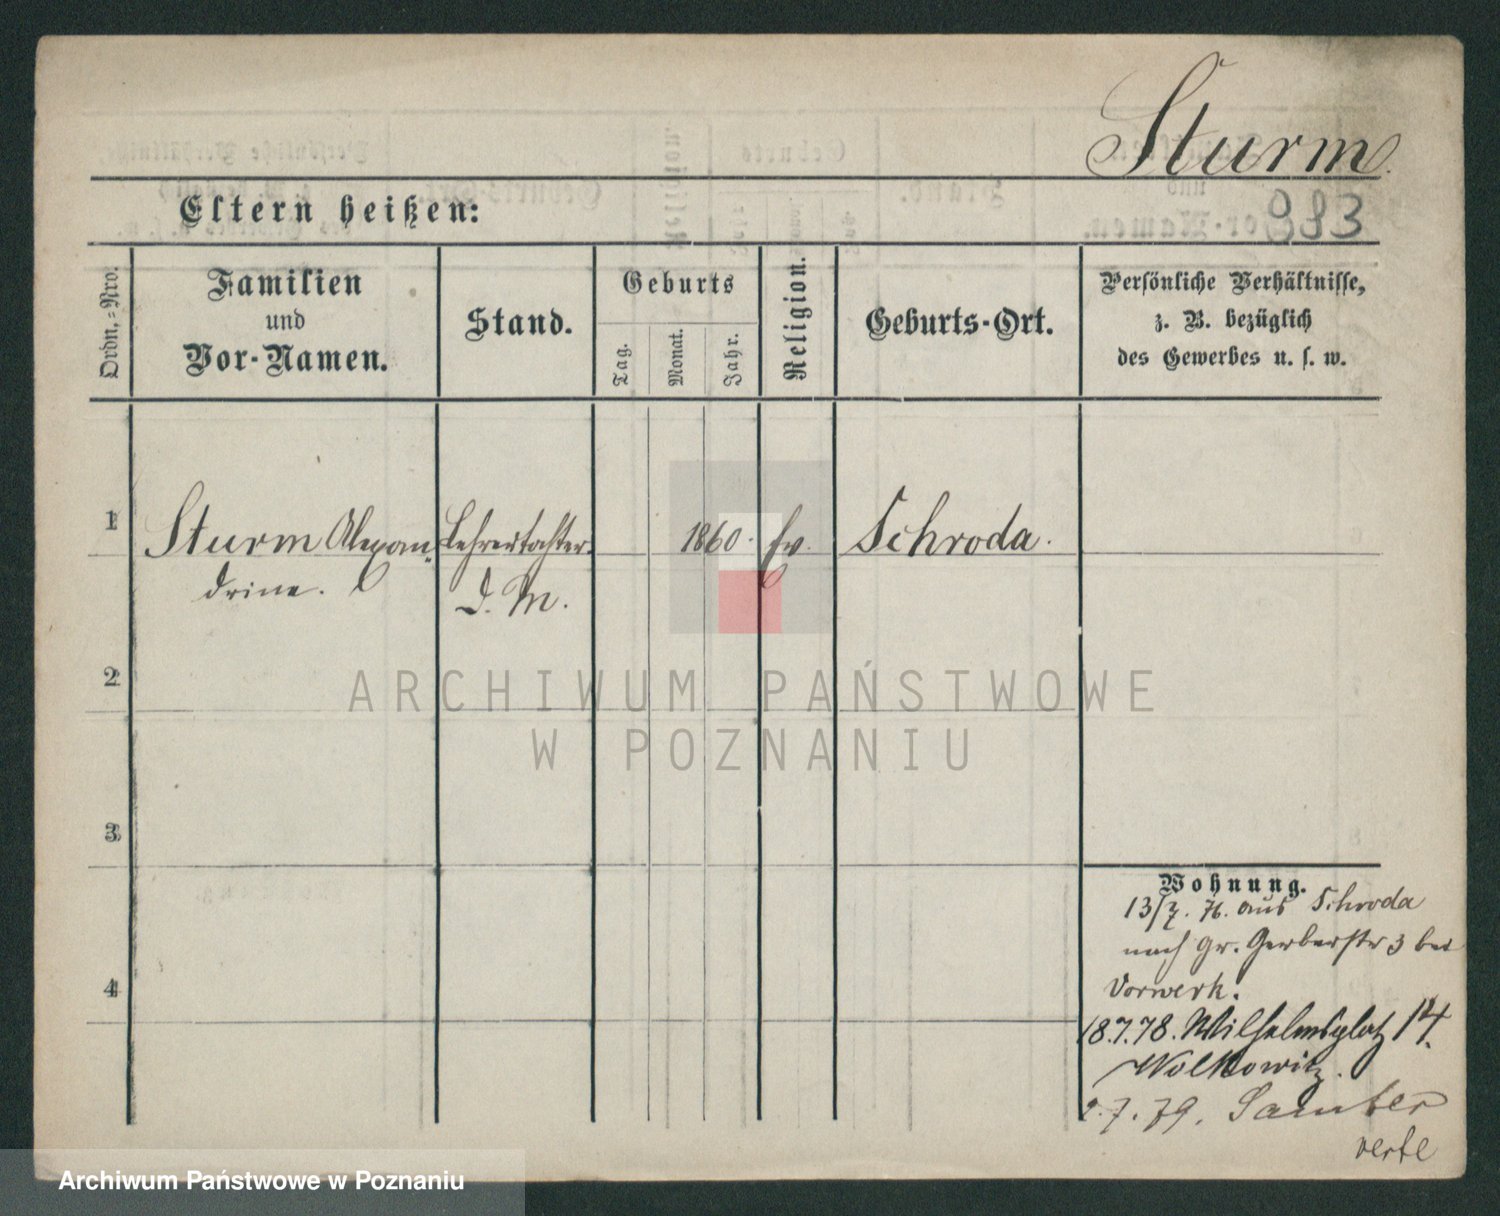 Sturm.
Eltern heißen:
983
Ordn.-Nro.
Familien
und
Vor-Namen.
Stand.
Geburts
Tag.
Monat.
Jahr.
Religion.
Geburts-Ort.
Persönliche Verhältnisse,
z. B. bezüglich
des Gewerbes u. s. w.
1
Sturm Alexan-
drine.
Lehrertochter
D. M.
1860.
ev.
Schroda.
2
3
4
ARCHIWUM PAŃSTWOWE
W POZNANIU
Wohnung.
13/7. 76. aus Schroda
nach gr. Gerberstr 3 bei
Vorwerk.
18.7.78. Wilhelmsplatz 14.
Wolkowitz.
.7.79. Samter
verte
Archiwum Państwowe w Poznaniu